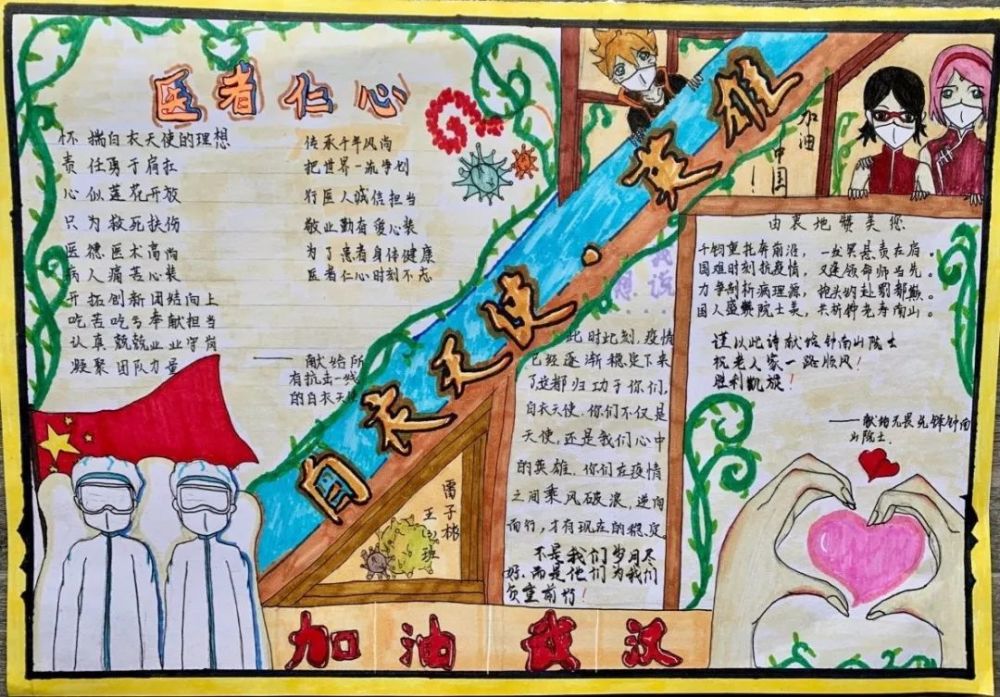 医者仁心
怀揣白衣天使的理想
责任勇于肩扛
心似莲花开放
只为救死扶伤
医德医术高尚
病人痛苦心装
开拓创新团结向上
吃苦吃亏奉献担当
认真兢兢业业学岗
凝聚团队力量
传承千年风尚
把世界一流争创
行医人诚信担当
敬业勤有爱心装
为了患者身体健康
医者仁心时刻不忘
——献给所
有抗击一线
的白衣天使
白衣天使·英雄
加油
中国!
我说
想
此时此刻,疫情
已经逐渐稳定下来
了这都归功于你们,
白衣天使.你们不仅是
天使,还是我们心中
的英雄.你们在疫情
之间乘风破浪,逆向
而行,才有现在的稳定
不是我们岁月尽
好.而是他们为我们
负重前行!
由衷地赞美您
千钧重托奔前沿,一发
悬责在肩。
国难时刻抗疫情,又逢领命师当先。
力争剖析病理源,
国人盛赞院士美,共祈神老寿南山。
谨以此诗献给钟南山院士
祝老人家一路顺风!
胜利凯旋!
——献给无畏先锋钟南
山院士
雷子彬
王
班
加油武汉